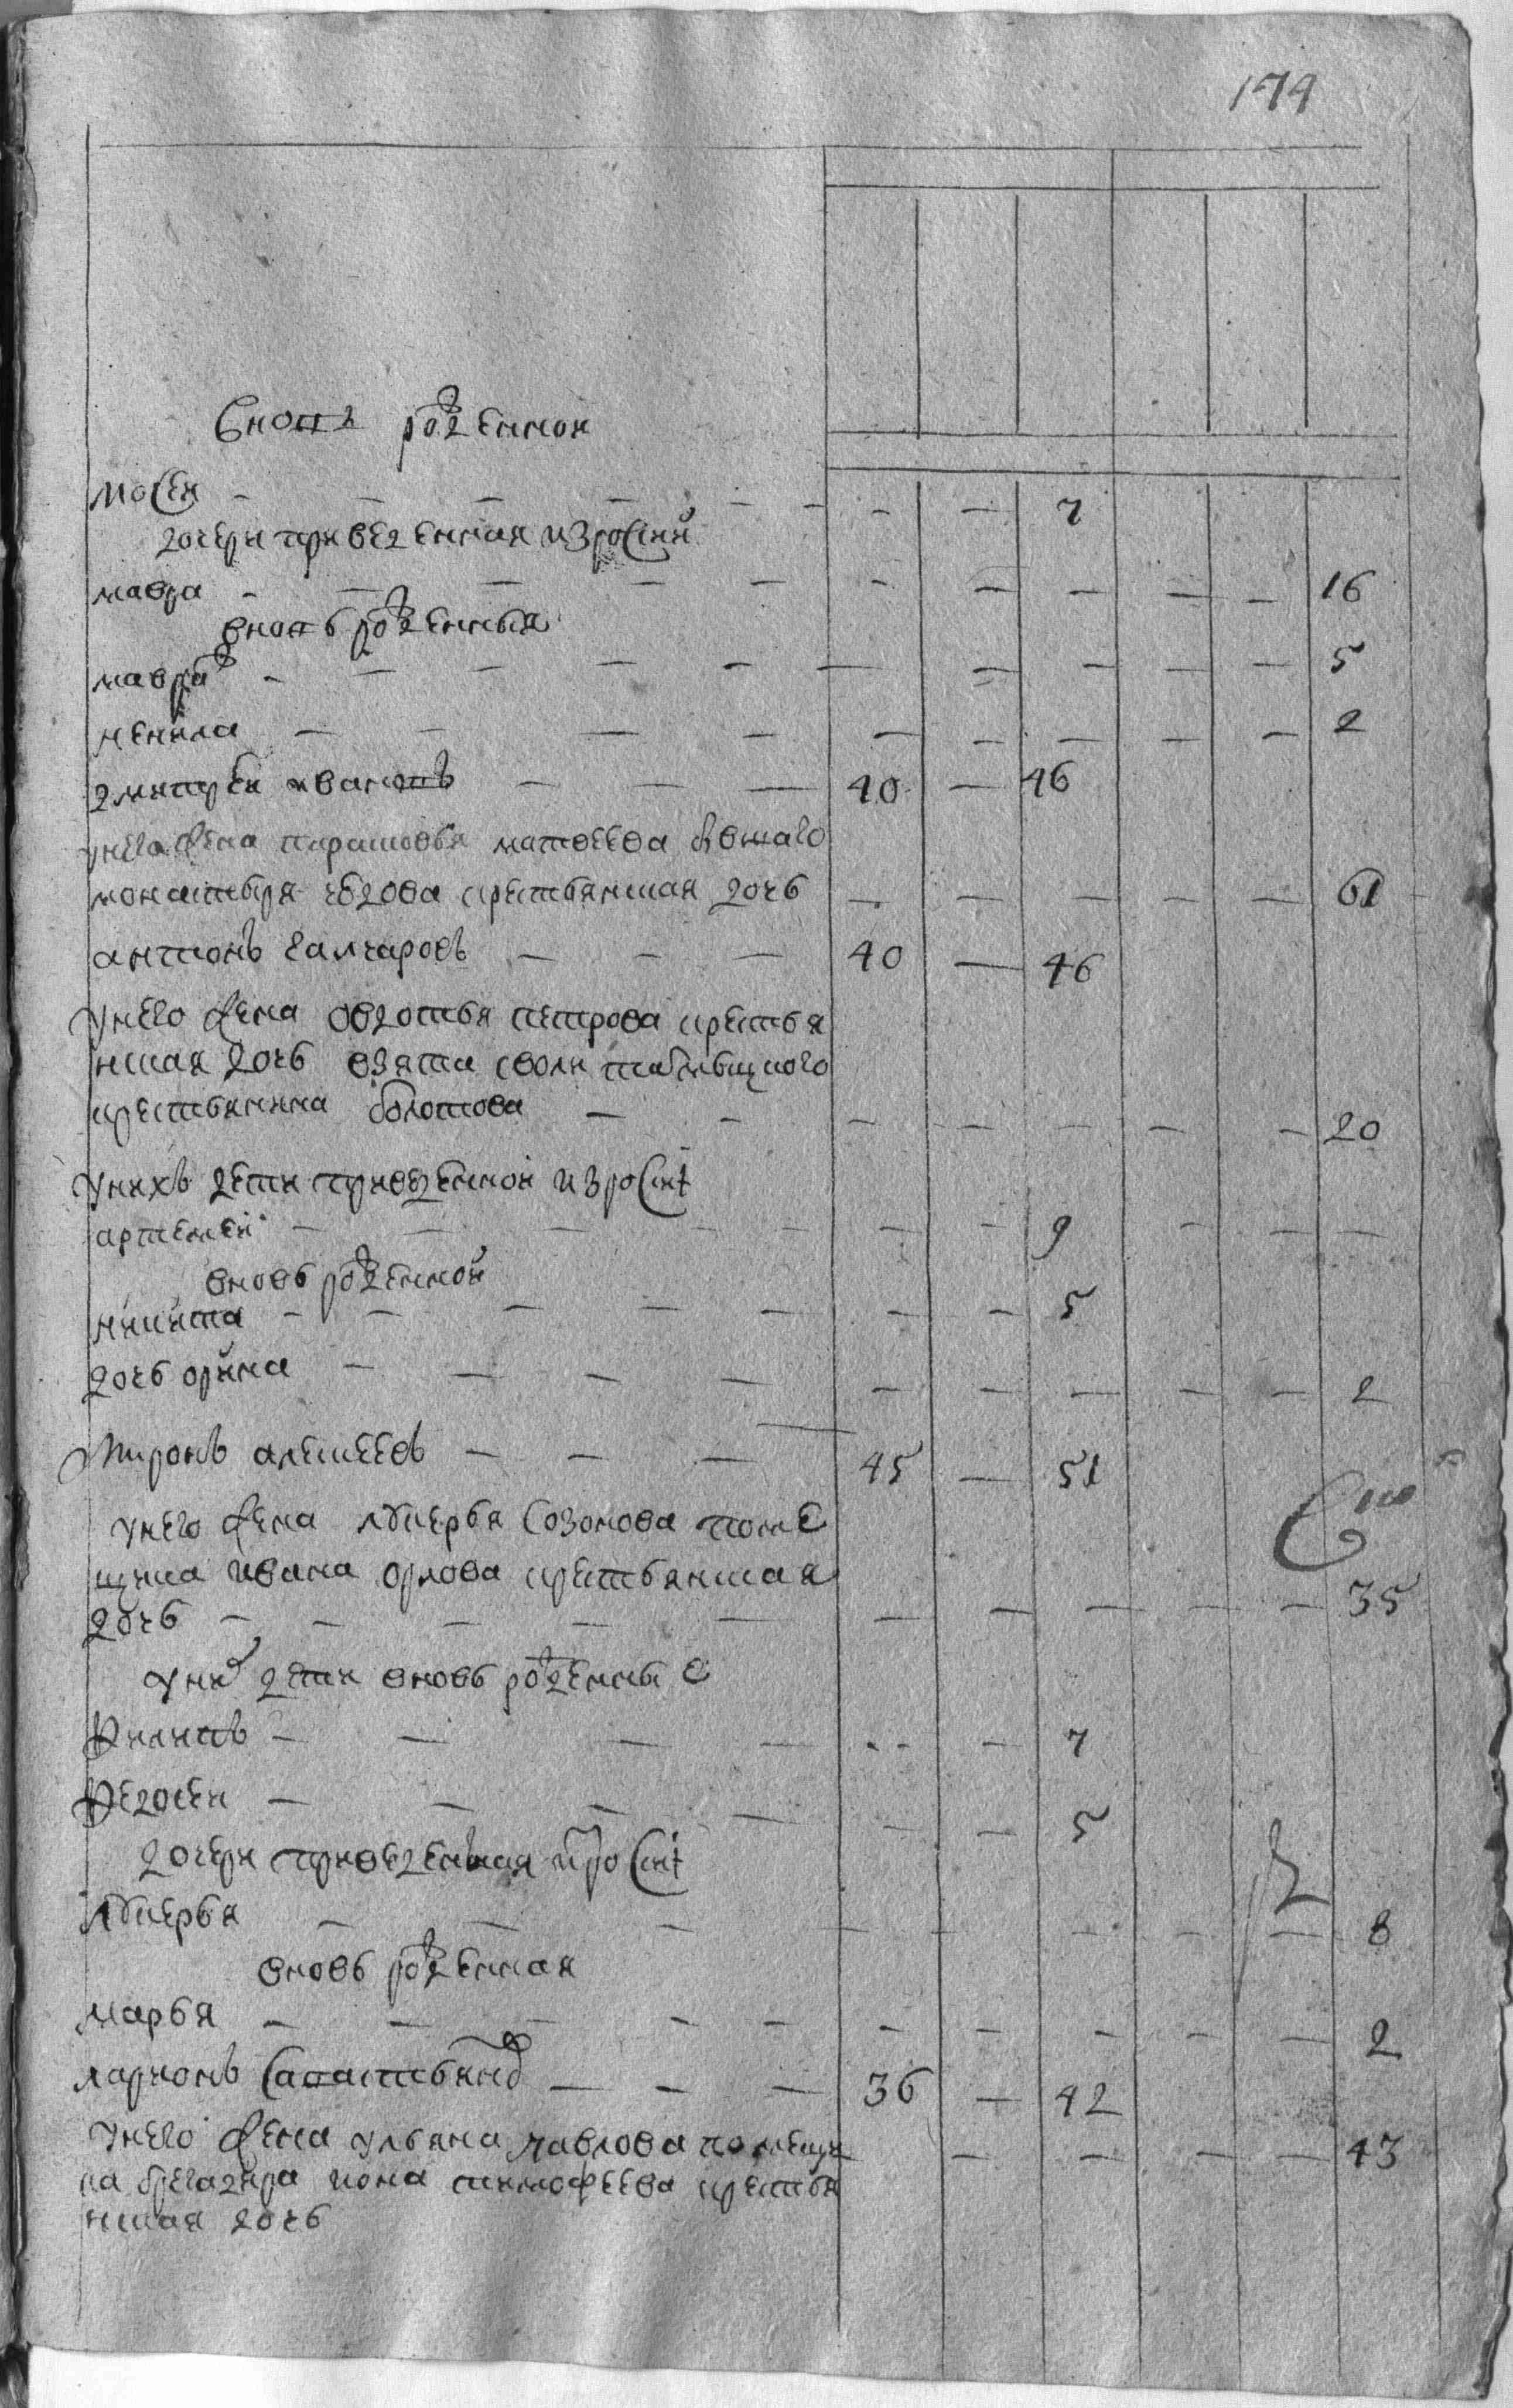 179
Вновь рожденнои
Мосеи — — — — — — — — 7
дочери привезенная изросиии
мавра — — — — — — — — — — 16
вновь рожденныя
мавра — — — — — — — — — — 5
ненила — — — — — — — — — 2
дмитреи ивановъ — — — 40 — 46
унего жена парасковья матвеева
монастыря крестьянская дочь — — — — — 61
антонъ — — — 40 — 46
Унего жена овдотья петрова крестья
нская дочь взята
крестьянина болотова — — — — — — — 20
Унихъ дети привезеннои изросие
артемеи — — — — — — — 9 — — —
вновь рожденнои
никита — — — — — — — 5
дочь орина — — — — — — — — — 2
Миронъ алексеевъ — — — 45 — 51
унего жена лукерья созонова поме
щика ивана орлова крестьянская
дочь — — — — — — — — — — 35
уних дети вновь рожденные
Филипъ — — — — - - — 7
Федосеи — — — — — — 5
дочери привезенная изросие
лукерья — — — — — — — — 8
вновь рожденная
марья — — — — — — — — — — 2
ларионъ савастьянов — — — 36 — 42
Унего жена ульяна павлова помещи — — — — 43
ка брегадира тимофеева крестья
нская дочь